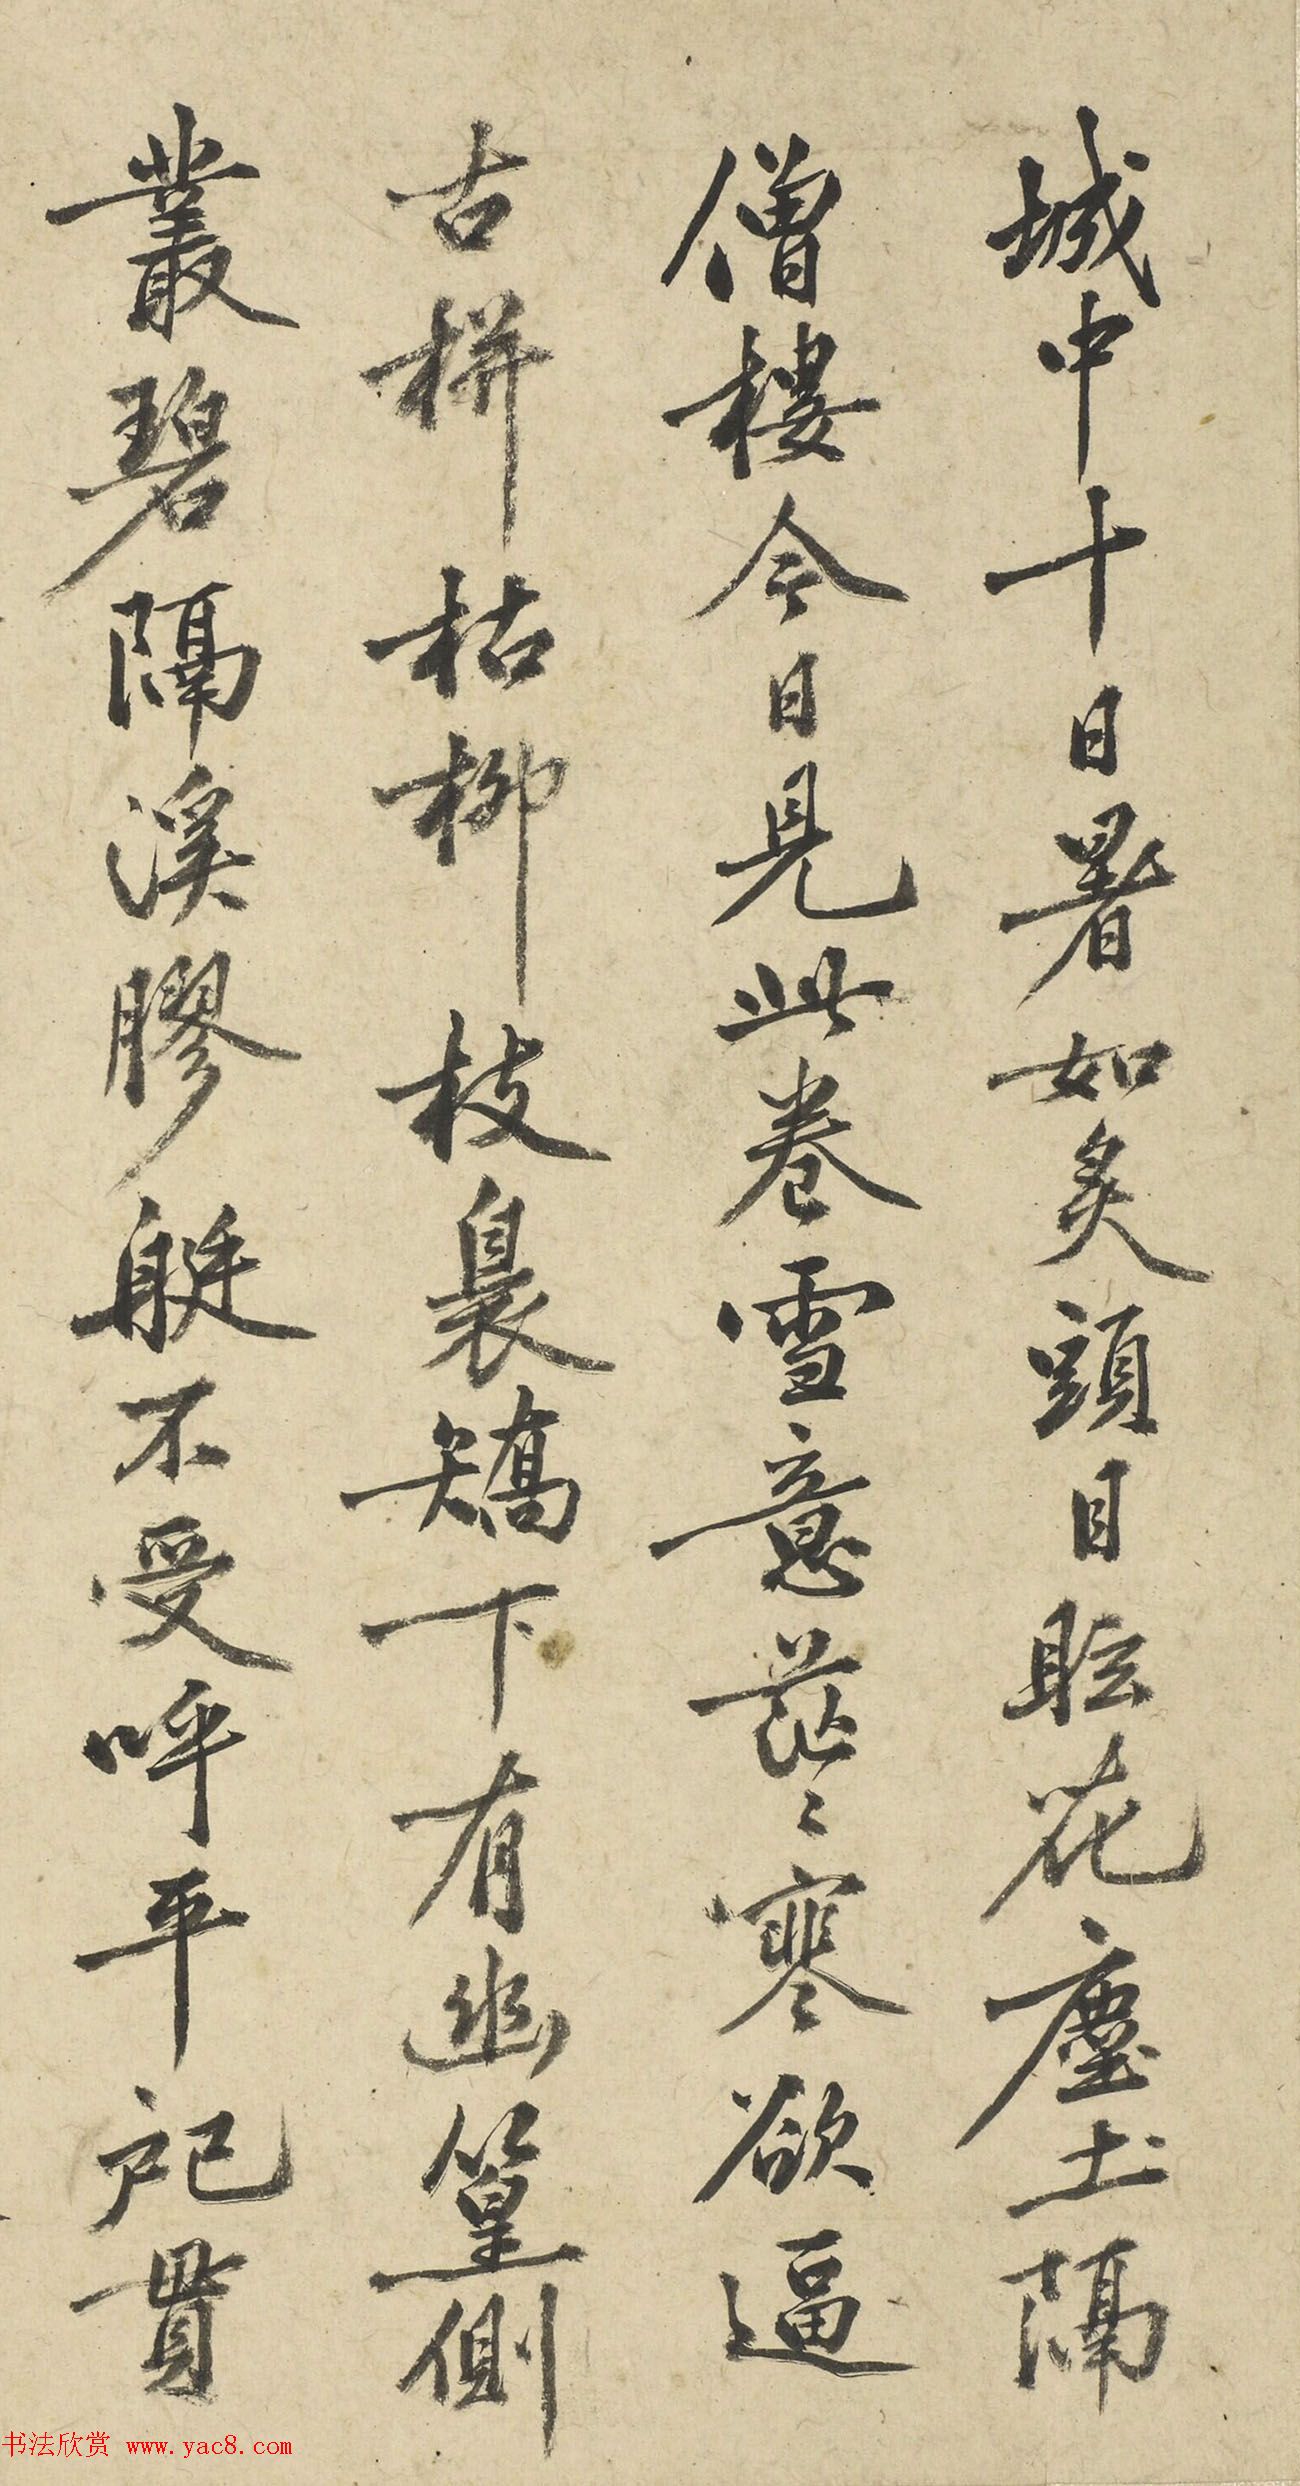 城中十日暑如炙頭目眩花塵土隔
僧樓今日見此卷雪意茫〻寒欲逼
古栟枯柳枝裊矯下有幽篁側
叢碧隔溪膠艇不受呼平圯貫
书法欣赏 www.yac8.com